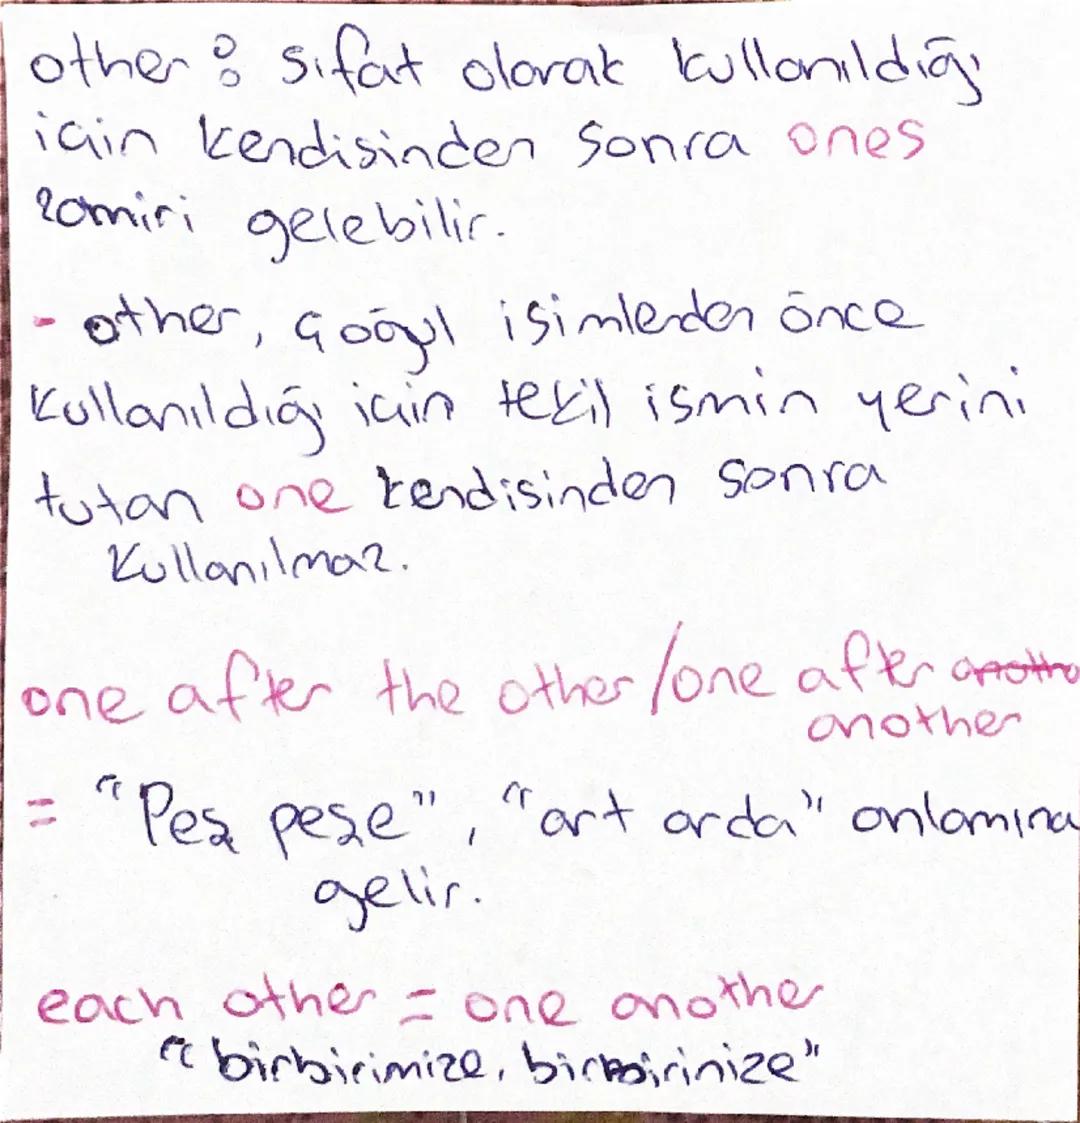 other : Sıfat olarak kullanıldığı
için kendisinden sonra ones
zamiri gelebilir.
- other, çoğul isimlerden önce
kullanıldığı için tekil ismin yerini
tutan one kendisinden sonra
kullanılmaz.
one after the other / one after
another
= "Peş peşe", "art arda" anlamına
gelir.
each other = one another
"birbirimize, birbirinize"